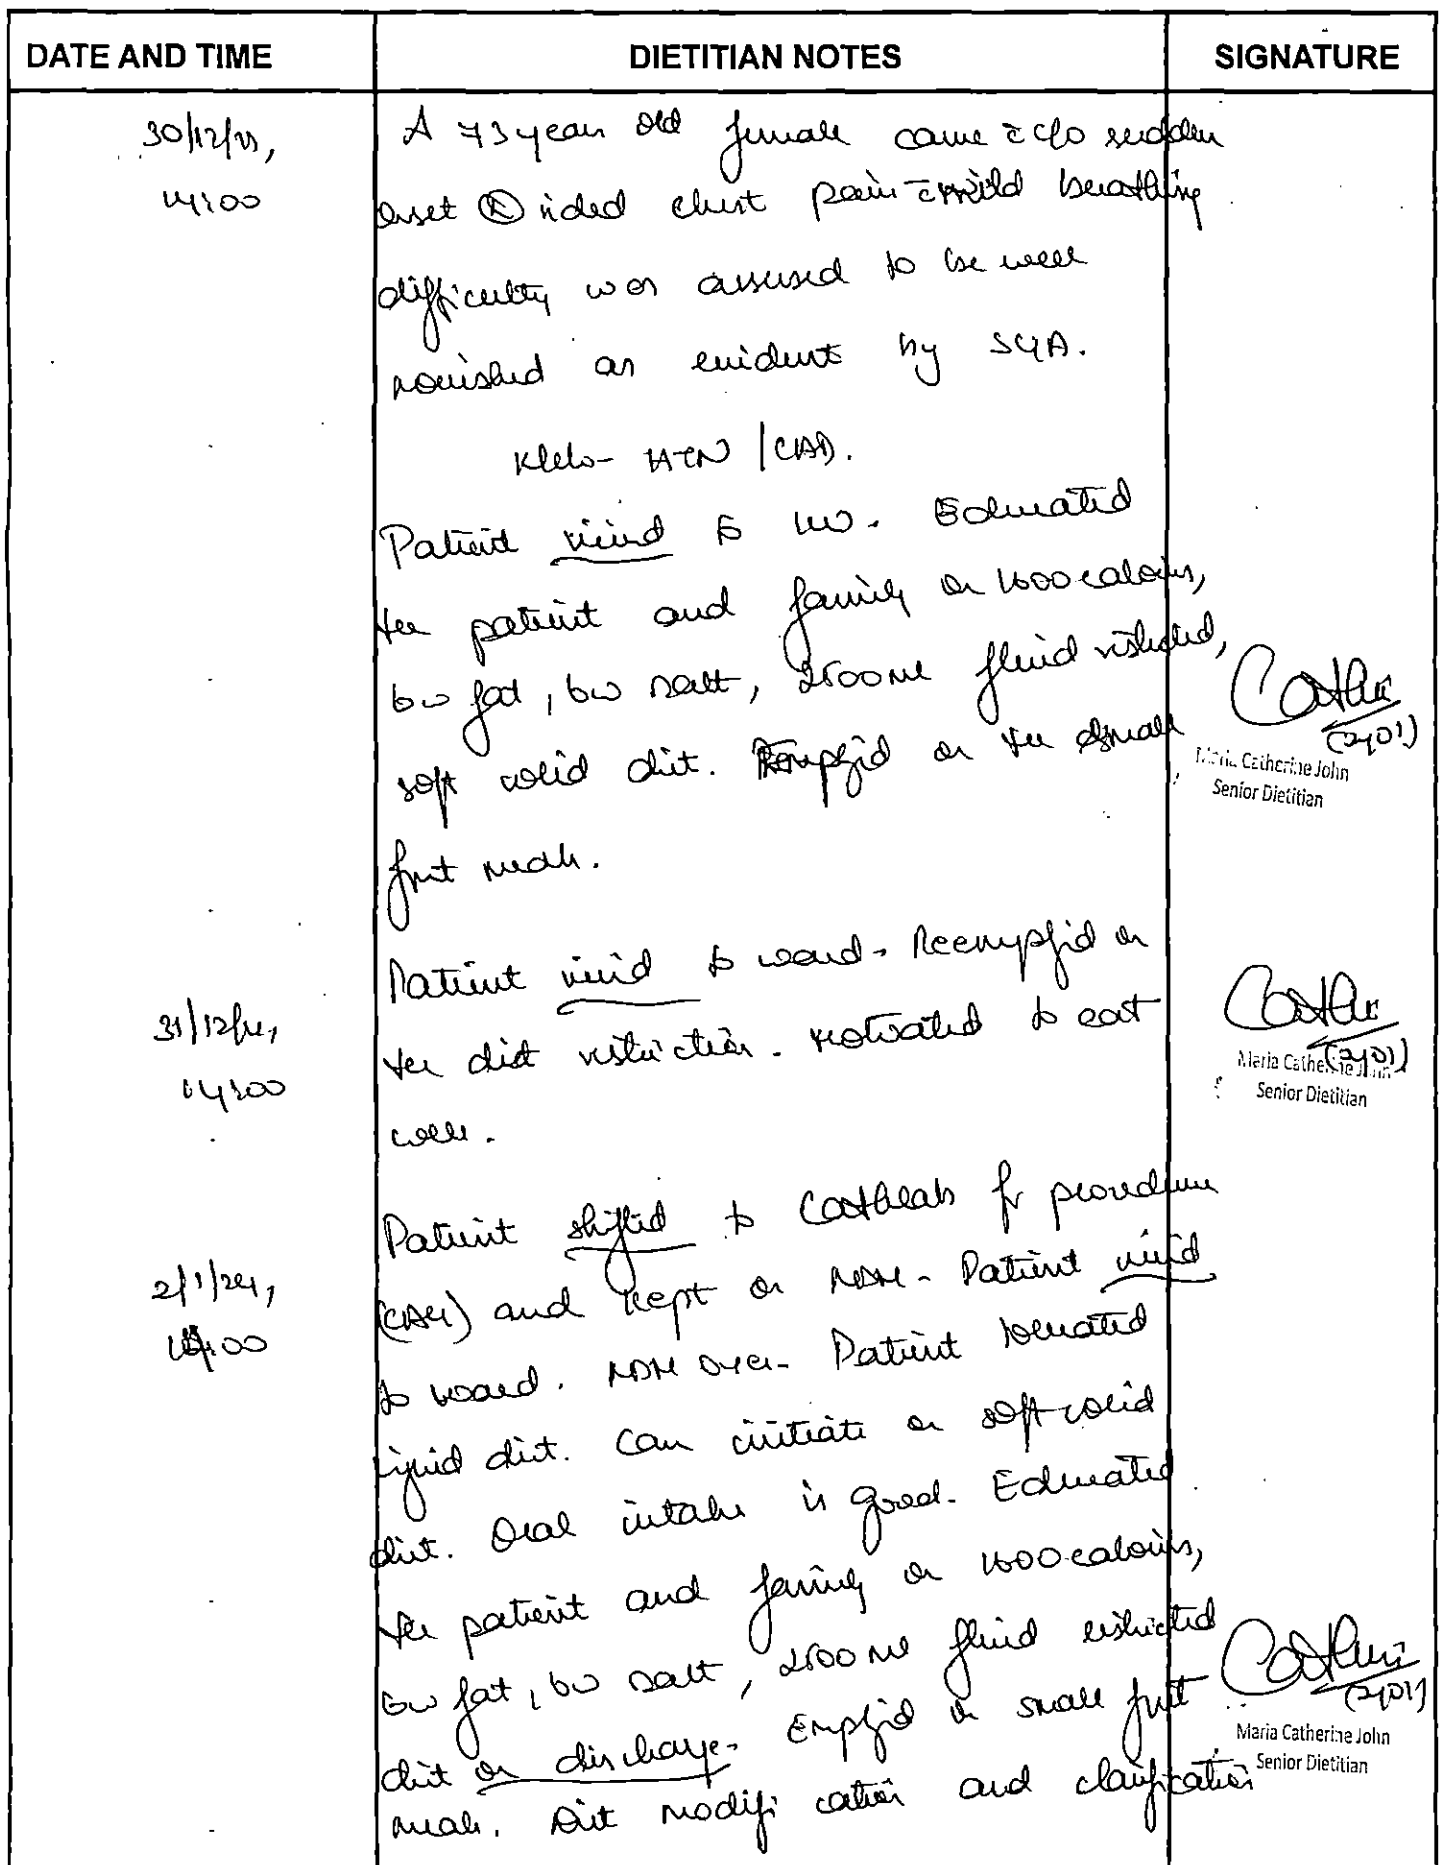 DATE AND TIME
DIETITIAN NOTES
SIGNATURE
30/12/23,
14:00
A 73 year old female came c̄ c/o sudden
onset Ⓡ sided chest pain c̄ mild breathing
difficulty was assessed to be well
nourished as evident by SGA.
K/c/o - HTN / CAD.
Patient received to ICU. Educated
the patient and family on 1600 calories,
low fat, low salt, 2500 ml fluid restricted,
soft solid diet. Emp'd on the small
frqt meals.
Cather
(2401)
Maria Catherine John
Senior Dietitian
31/12/23,
14:00
Patient received to ward. Reemp'd on
the diet restriction. Motivated to eat
well.
Cather
(2401)
Maria Catherine John
Senior Dietitian
2/1/24,
:00
Patient shifted to Cathlab for procedure
(CAG) and kept on NBM. Patient received
to ward. NBM over. Patient tolerated
liquid diet. Can initiate on soft solid
diet. Oral intake is good. Educated
the patient and family on 1600 calories,
low fat, low salt, 2500 ml fluid restricted
diet on discharge. Emp'd on small frqt
meals. Diet modification and clarification
Cather
(2401)
Maria Catherine John
Senior Dietitian